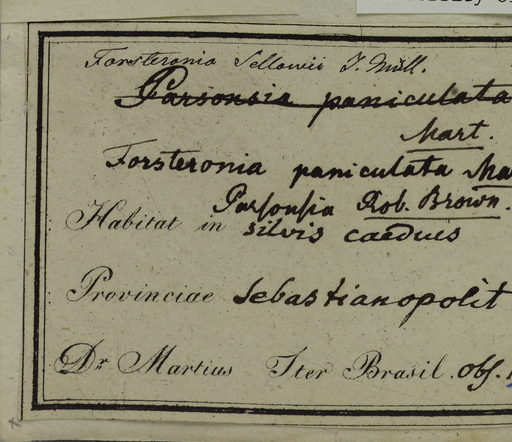 Forsteronia Sellowii J. Müll.
Parsonsia paniculata
Mart.
Forsteronia paniculata Ma
Parsonsia Rob. Brown.
Habitat in silvis caeduis
Provinciae Sebastianopolit
Dr Martius Iter Brasil. obs.